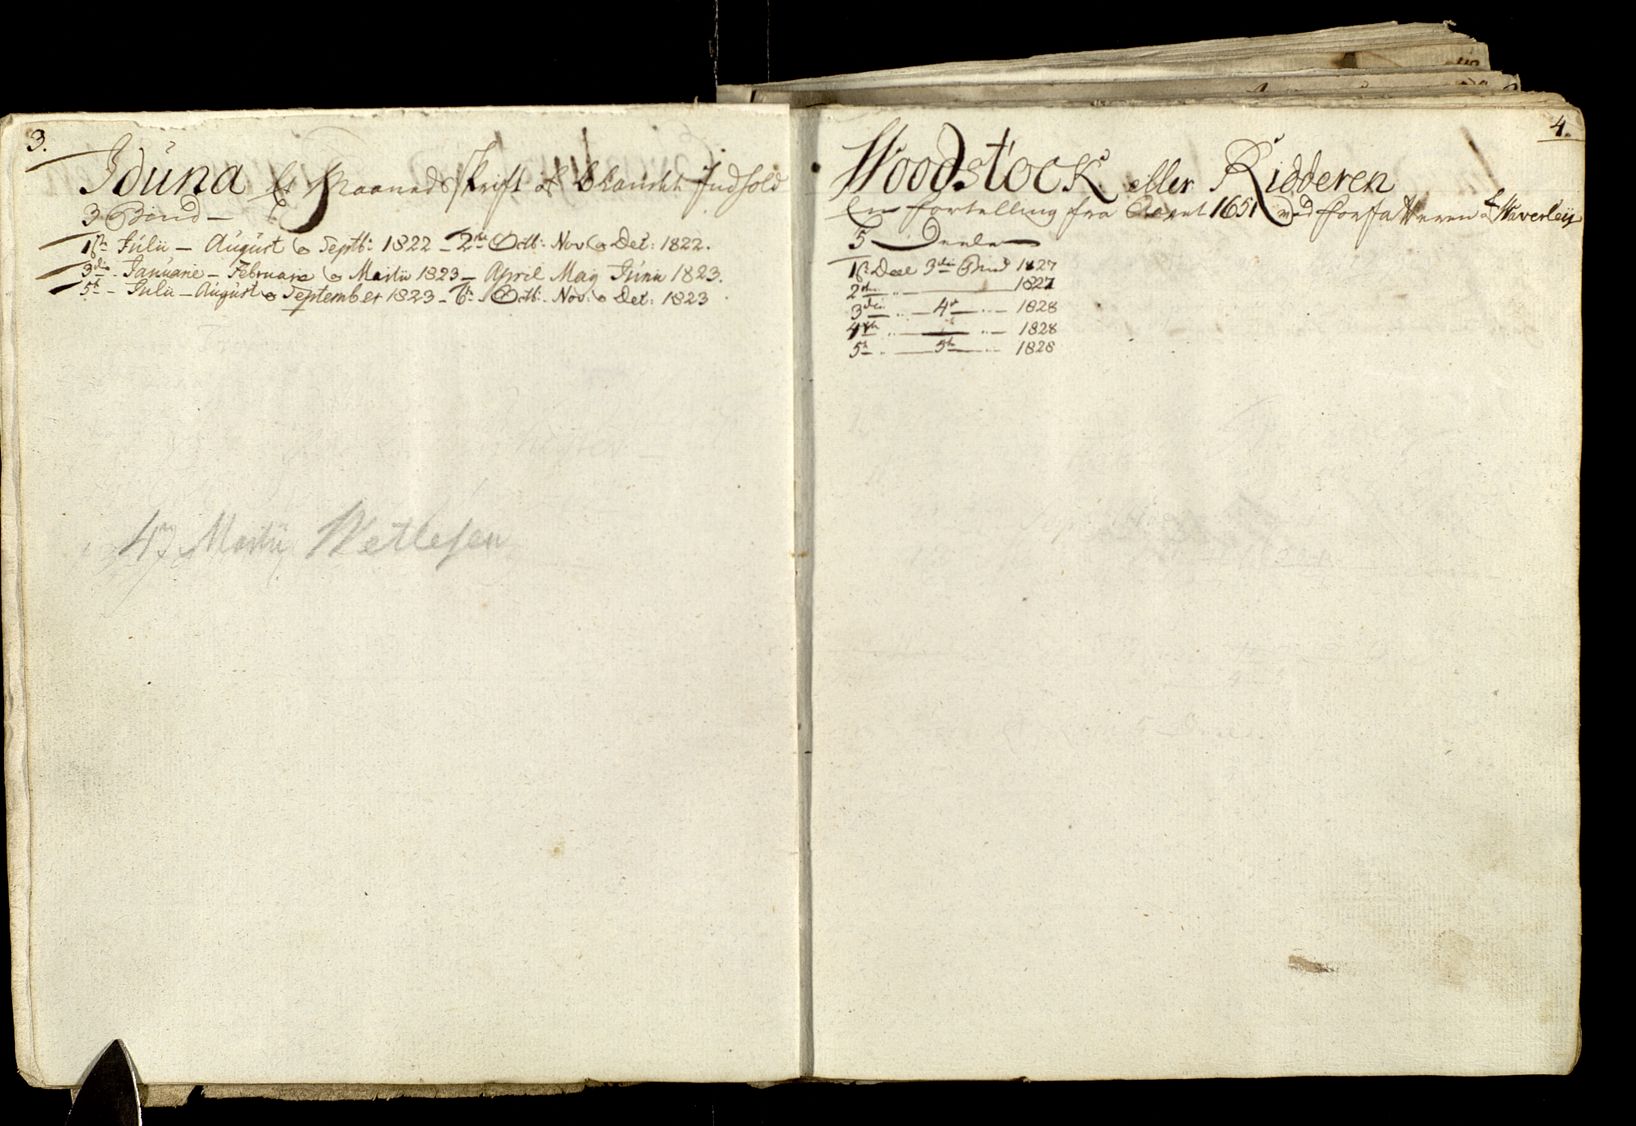 3.
Iduna Et Maanedsskrift af blandet Indhold
3 Bind —
1ste Julii — August og Septb: 1822 — 2den Octb: Nov og Det: 1822.
3die Januarie — Februarie og Martii 1823 — April May Junii 1823.
5te — Julii — August og September 1823 — 6te Octb: Nov: og Det: 1823
Martii Detlefsen
4.
Woodstock eller Ridderen
En Fortelling fra Aaret 1651 ved Forfatteren af Waverley
5 Deele
1ste Deel 3die Bind 1827
2den „ — 1827
3die „ — 4de — „ — 1828
4de „ — „ — 1828
5te „ — 5te — 1828